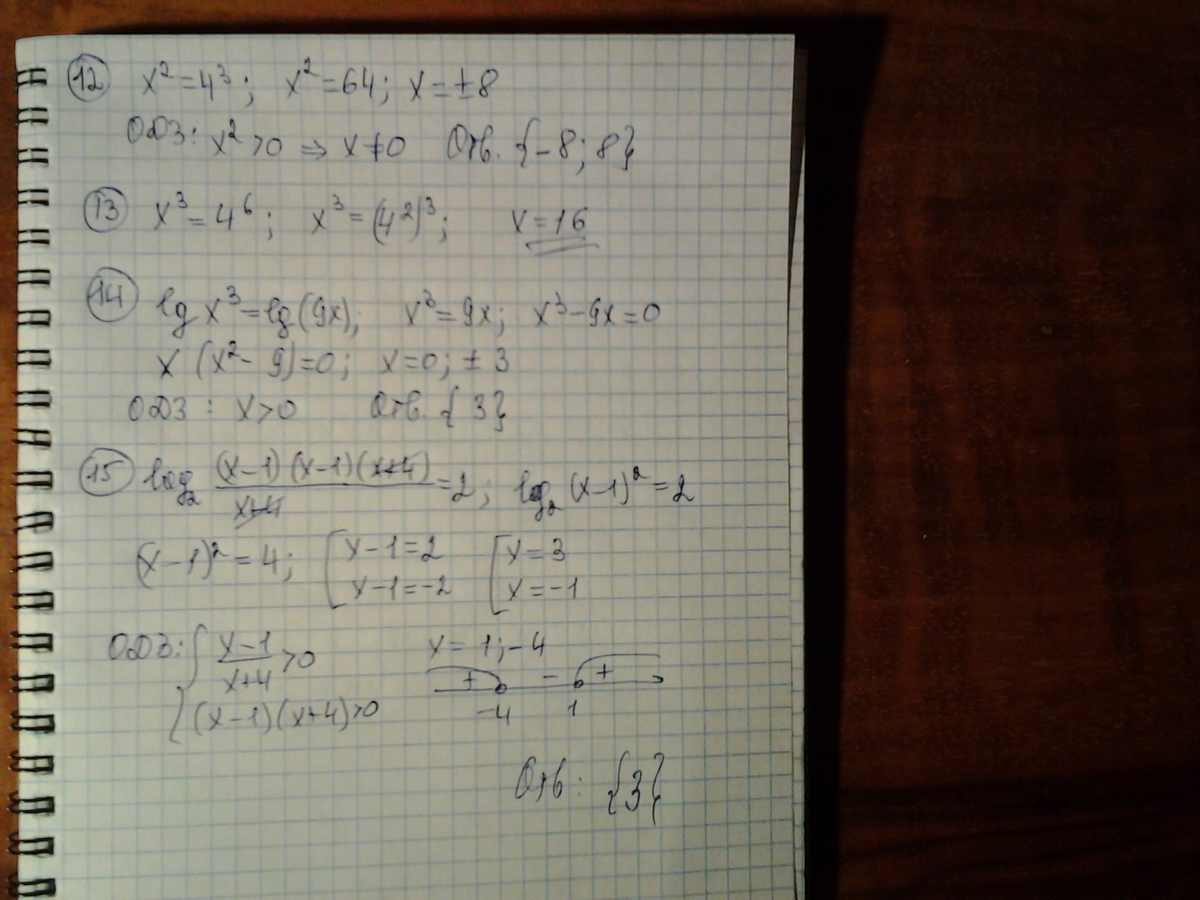 12 x² = 4³; x² = 64; x = ±8
ОДЗ: x² > 0 ⇒ x ≠ 0 Отв. {-8; 8}
13 x³ = 4⁶; x³ = (4²)³; x = 16
14 lg x³ = lg(9x); x³ = 9x; x³ - 9x = 0
x (x² - 9) = 0; x = 0; ± 3
ОДЗ: x > 0 Отв. {3}
15 log₂ (x-1)(x-1)(x+4)/(x+4) = 2; log₂ (x-1)² = 2
(x-1)² = 4; [ x-1 = 2 [ x = 3
x-1 = -2 x = -1
ОДЗ: { (x-1)/(x+4) > 0 x = 1; -4
+ - +
(x-1)(x+4) > 0 -4 1
Отв: {3}